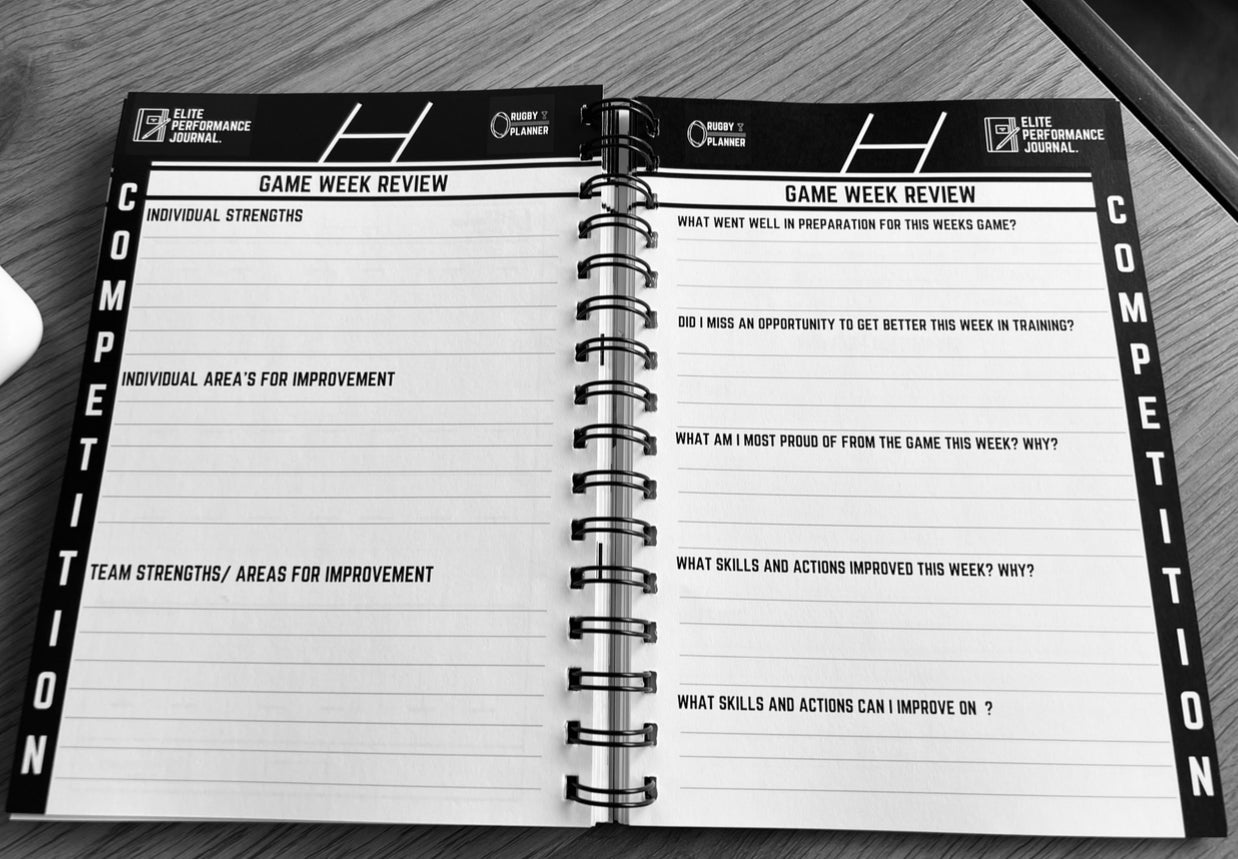 ELITE
PERFORMANCE
JOURNAL.
RUGBY
PLANNER
GAME WEEK REVIEW
COMPETITION
INDIVIDUAL STRENGTHS
INDIVIDUAL AREA'S FOR IMPROVEMENT
TEAM STRENGTHS/ AREAS FOR IMPROVEMENT
RUGBY
PLANNER
ELITE
PERFORMANCE
JOURNAL.
GAME WEEK REVIEW
WHAT WENT WELL IN PREPARATION FOR THIS WEEKS GAME?
DID I MISS AN OPPORTUNITY TO GET BETTER THIS WEEK IN TRAINING?
WHAT AM I MOST PROUD OF FROM THE GAME THIS WEEK? WHY?
WHAT SKILLS AND ACTIONS IMPROVED THIS WEEK? WHY?
WHAT SKILLS AND ACTIONS CAN I IMPROVE ON ?
COMPETITION